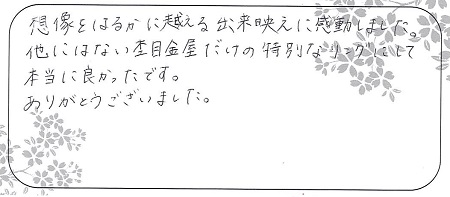 想像をはるかに越える出来映えに感動しました。
他にはない杢目金屋だけの特別なリングにして
本当に良かったです。
ありがとうございました。